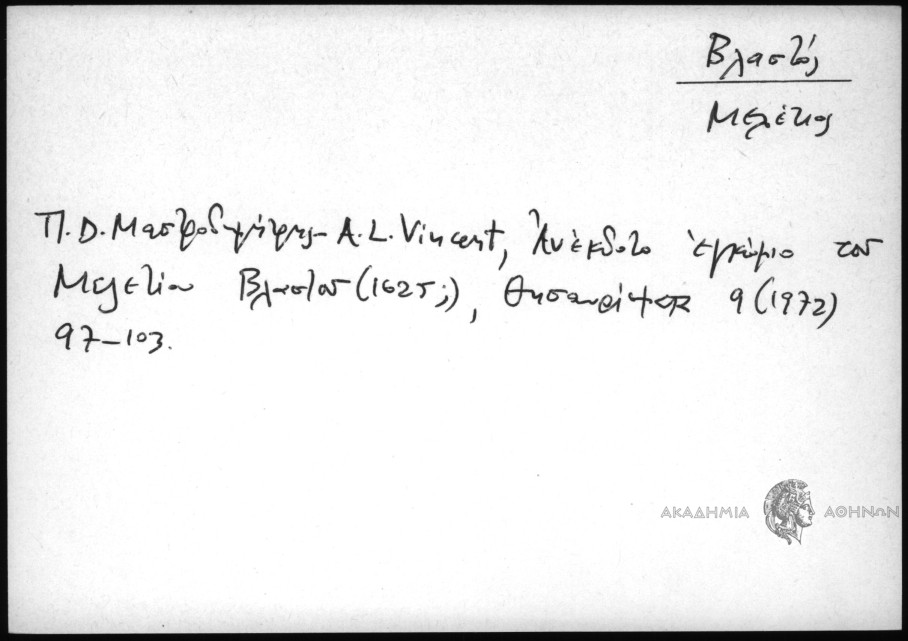 Βλαστός
Μελέτιος
Π. D. Μαστροδημήτρης - A. L. Vincent, Ἀνέκδοτο ἐγκώμιο τοῦ
Μελετίου Βλαστοῦ (1625;), Θησαυρίσματα 9 (1972)
97-103.
ΑΚΑΔΗΜΙΑ ΑΘΗΝΩΝ